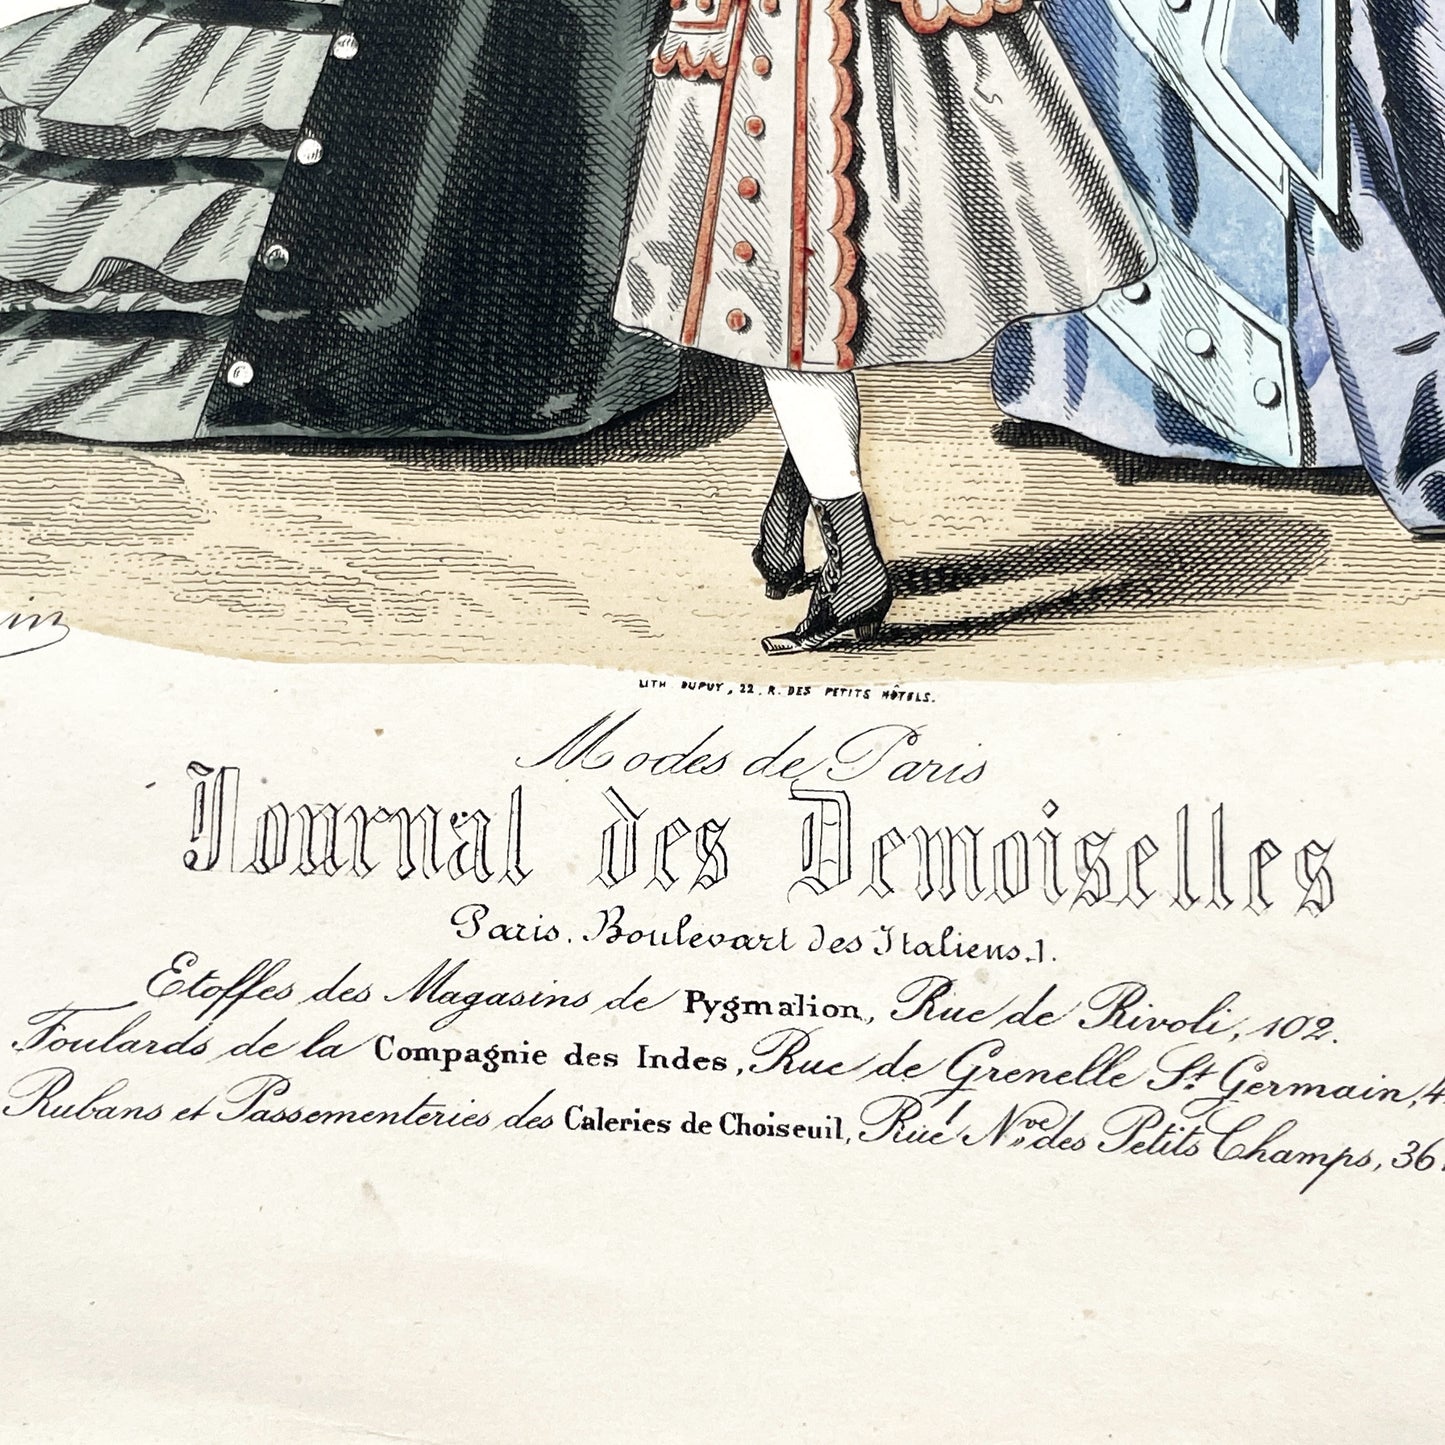 LITH DUPUY, 22. R. DES PETITS HÔTELS.
Modes de Paris
Journal des Demoiselles
Paris. Boulevart des Italiens, 1.
Etoffes des Magasins de Pygmalion, Rue de Rivoli, 102.
Foulards de la Compagnie des Indes, Rue de Grenelle St Germain, 4
Rubans et Passementeries des Caleries de Choiseuil, Rue Nve des Petits Champs, 36